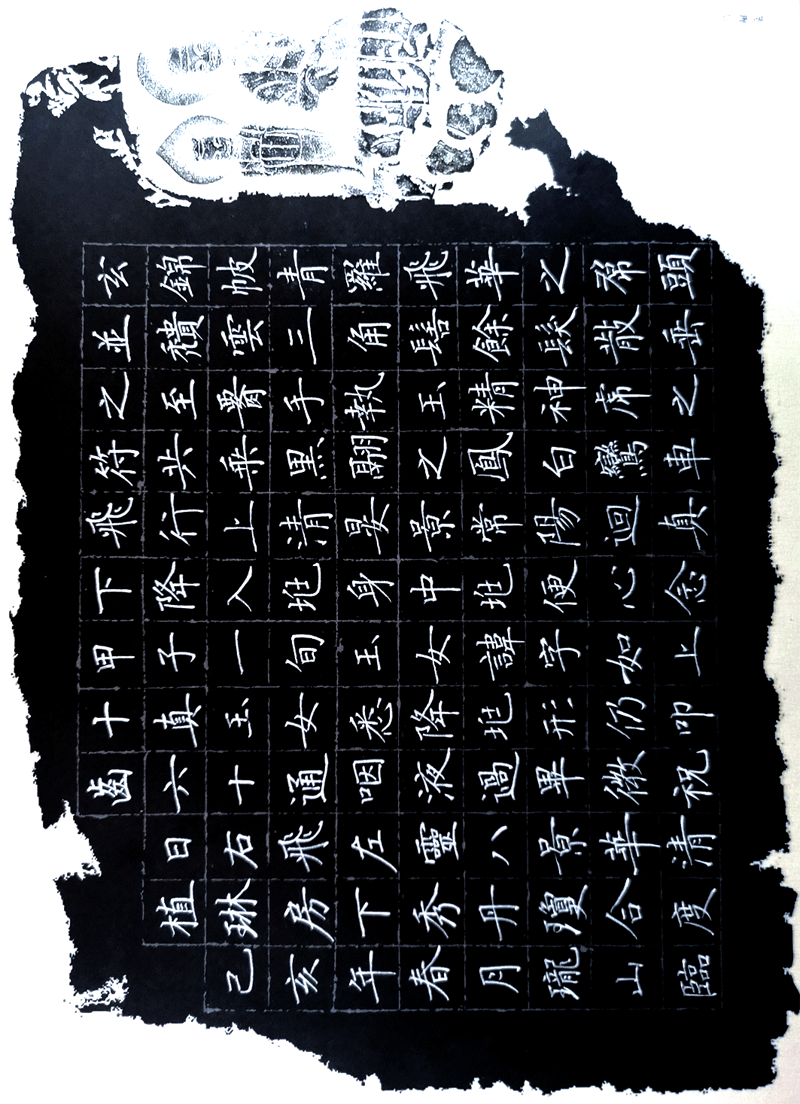 玄錦帔青羅飛華之帬頭
並穨雲三角髻餘髮散垂
之至要手執玉精神虎之
符共乘黑翮之鳳白鸞車
飛行上清晏景常陽迴真
下降入㘴身中㘴便心念
甲子一旬玉女諱字如上
十真玉女悉降㘴形仍叩
齒六十通咽液過畢微祝
曰右飛左靈八景華清
植琳房下秀丹瓊合度
己亥年春月瓏山臨